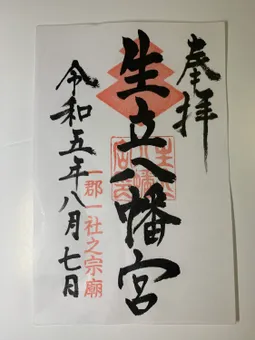 奉拝
生立八幡宮
一郡一社之宗廟
令和五年八月七日